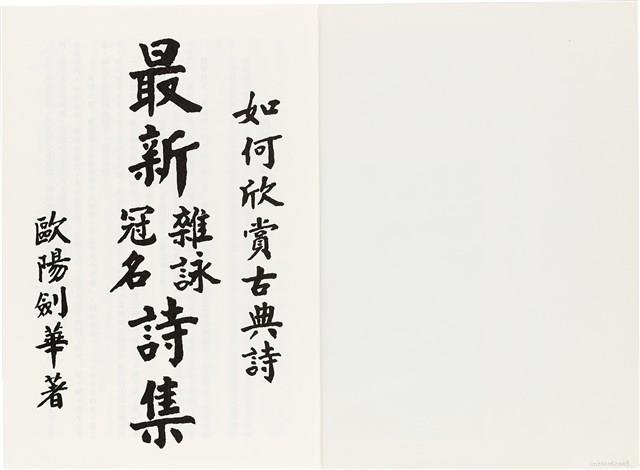 如何欣賞古典詩
最新雜詠冠名詩集
歐陽劍華著